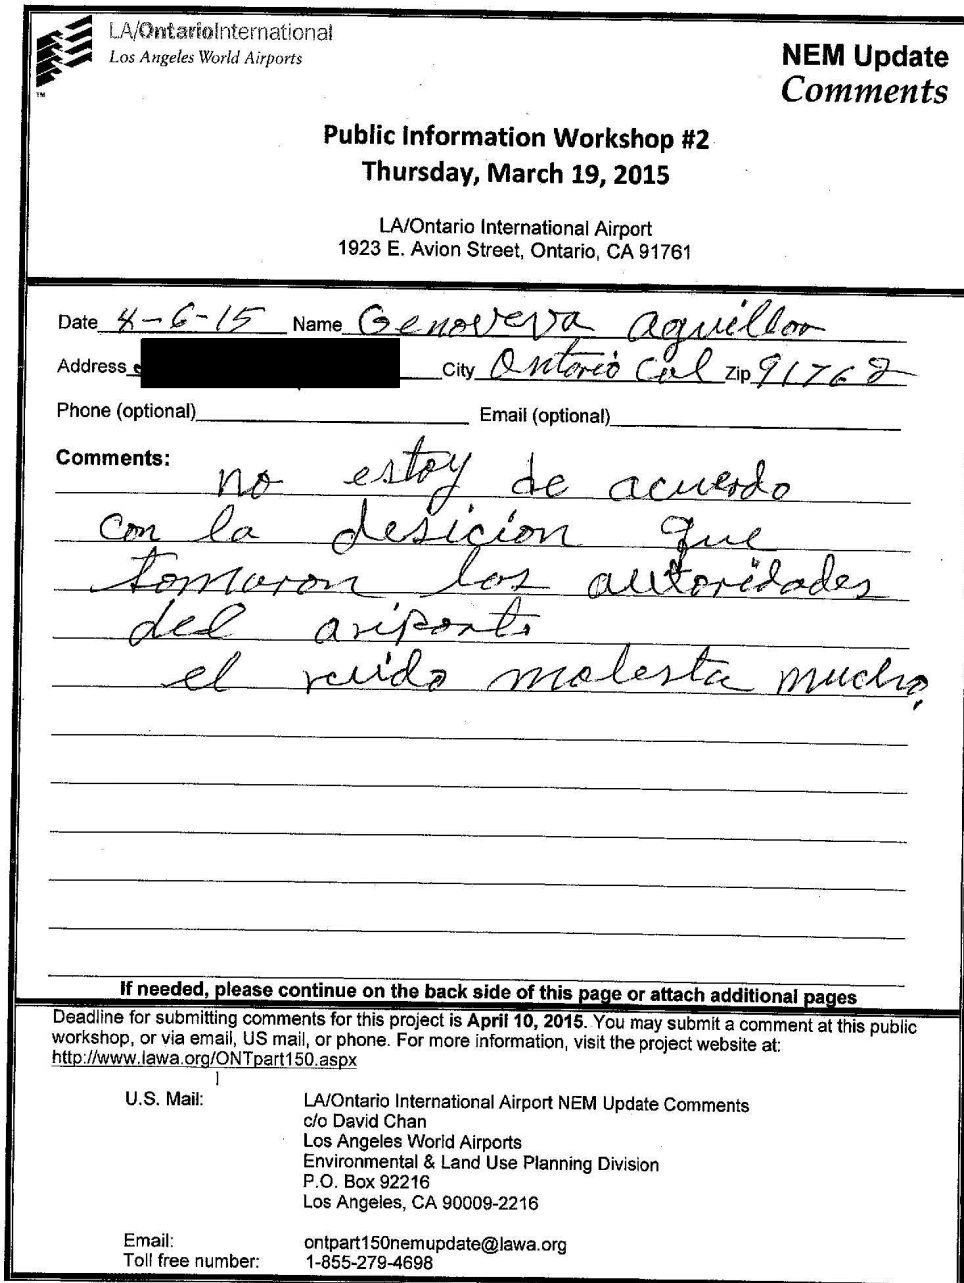 LA/OntarioInternational
Los Angeles World Airports
TM
NEM Update
Comments
Public Information Workshop #2
Thursday, March 19, 2015
LA/Ontario International Airport
1923 E. Avion Street, Ontario, CA 91761
Date 4-6-15 Name Genoveva aguillon
Address City Ontario Cal Zip 91762
Phone (optional) Email (optional)
Comments:
no estoy de acuerdo
con la desicion que
tomaron las autoridades
del ariporto
el ruido molesta mucho.
If needed, please continue on the back side of this page or attach additional pages
Deadline for submitting comments for this project is April 10, 2015. You may submit a comment at this public
workshop, or via email, US mail, or phone. For more information, visit the project website at:
http://www.lawa.org/ONTpart150.aspx
U.S. Mail: LA/Ontario International Airport NEM Update Comments
c/o David Chan
Los Angeles World Airports
Environmental & Land Use Planning Division
P.O. Box 92216
Los Angeles, CA 90009-2216
Email: ontpart150nemupdate@lawa.org
Toll free number: 1-855-279-4698